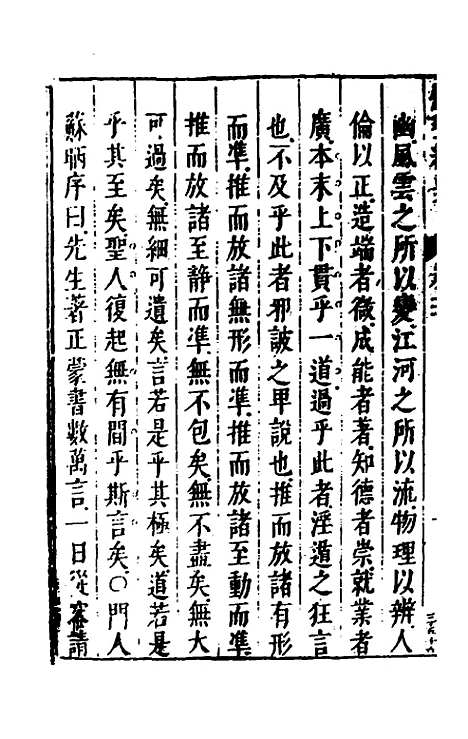 幽風雲之所以變江河之所以流物理以辨人
倫以正造端者微成能者著知德者崇就業者
廣本末上下貫乎一道過乎此者淫遁之狂言
也不及乎此者邪詖之卑說也推而放諸有形
而準推而放諸無形而準推而放諸至動而準
推而放諸至靜而準無不包矣無不盡矣無大
可過矣無細可遺矣言若是乎其極矣道若是
乎其至矣聖人復起無有間乎斯言矣○門人
蘇昞序曰先生著正蒙書數萬言一日從容請